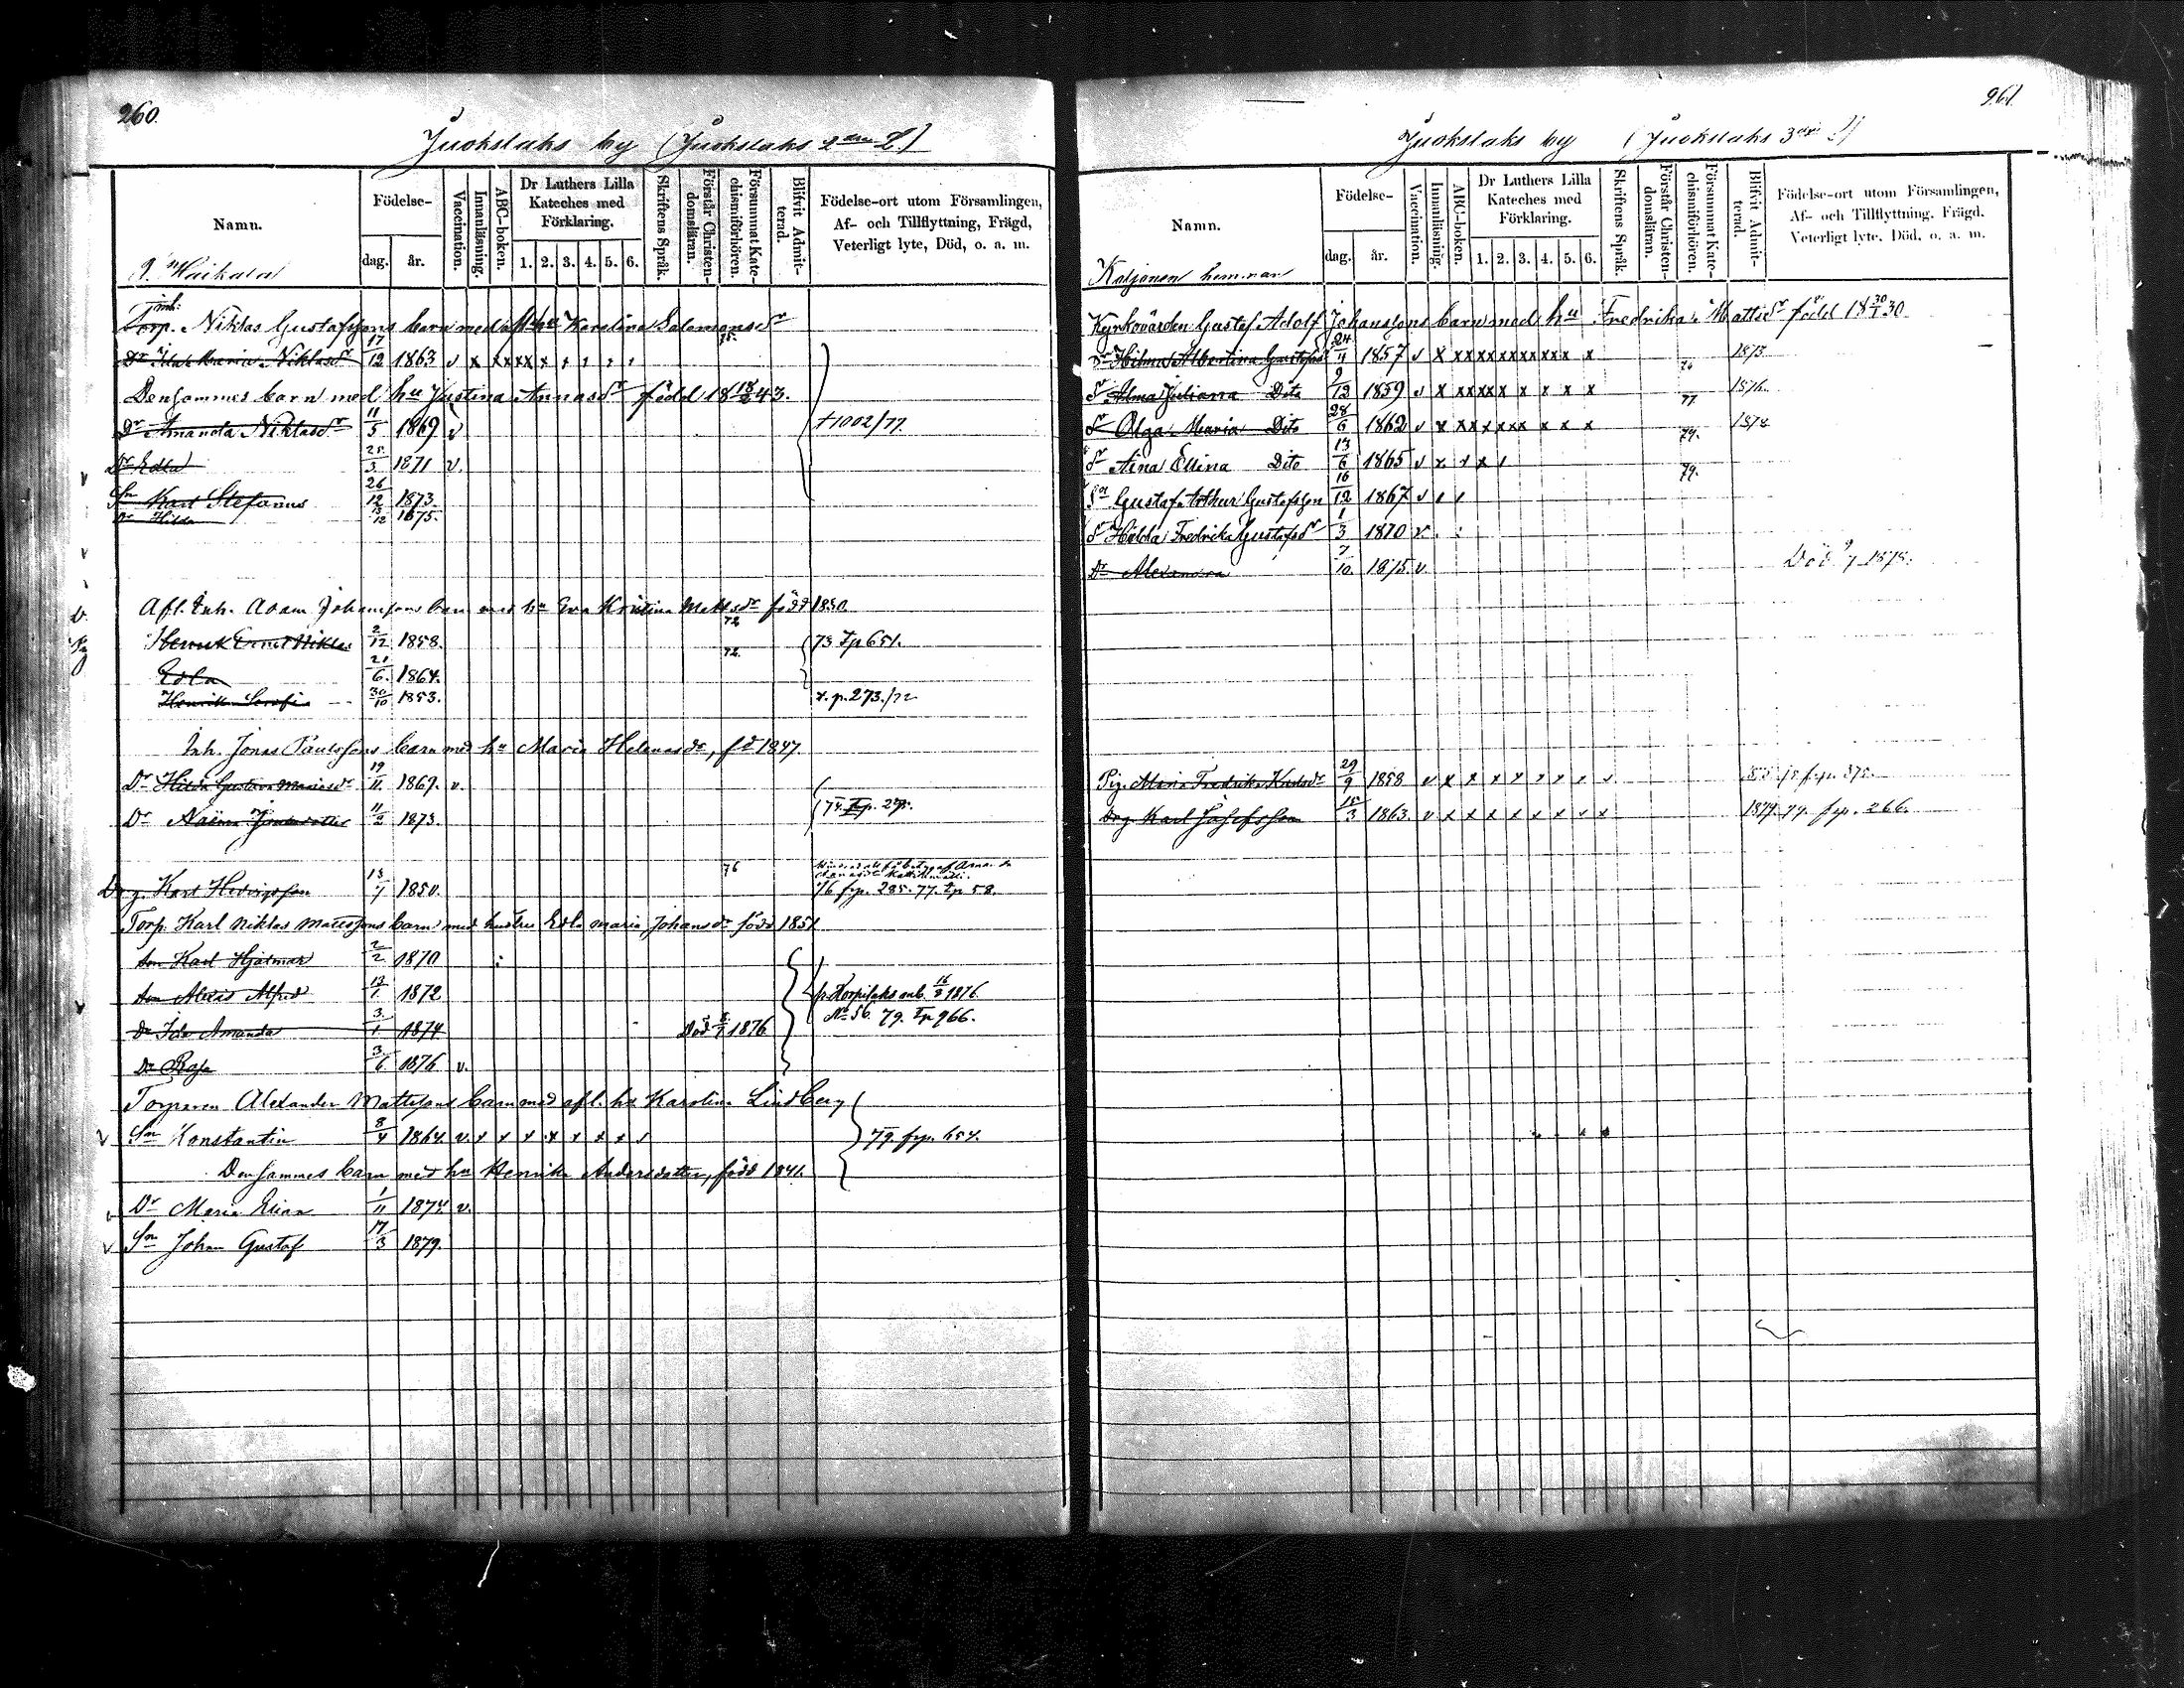 260.
Juokslaks by (Juokslaks 2
Namn.
Födelse-
dag. år.
Vaccination.
Innanläsning.
ABC-boken.
Dr Luthers Lilla Kateches med Förklaring.
1. 2. 3. 4. 5. 6.
Skriftens Språk.
Förstår Christendomsläran.
Försummat Katechismiförhören.
Blifvit Admitterad.
Födelse-ort utom Församlingen, Af- och Tillflyttning, Frägd, Veterligt lyte, Död, o. a. m.
Inh.
Torp. Niklas Gustafssons barn med afl. hu Karolina Salomonsdr
Dr Ida Maria Niklasdr 17/12 1863 v x x x x x x
Densammes barn med hu Justina Annasdr född 18 18/2 43.
Dr Amanda Niklasdr 11/5 1869 v +1002/77
Dr Edla 25/3 1871 v.
Sn Karl Stefanus 26/12 1873.
Dr Hilda 1875.
Afl. Inh. Adam Johanssons barn med hu Eva Kristina Mattsdr född 1830
72
Henrik Ernst Niklas 2/12 1858. 73 Tp 651.
72.
Edla 21/6 1864.
Henrik Serafi 30/10 1853. p. 273./72
Inh. Jonas Paulssons barn med hu Maria Helenasdr, fd 1847.
Dr Hilda Gustava Mariasdr 19/11 1867. v.
Dr Naima Jonasdotter 11/2 1873. 74
76
Drg. Karl Hedvigsson 13/7 1850. 76 frp. 285. 77. Tp 58.
Torp. Karl Niklas Mattssons barn med hustru Edla Maria Johansdr född 1851
Son Karl Hjalmar 2/2 1870
Son Alexis Alfred 12/1 1872 fr. Korpilaks enl. 16/3 1876.
No 56. 79. Tp 966.
Dr Ida Amanda 3/1 1874 Död 1876
Dr Rosa 3/6 1876 v.
Torparen Alexander Mattssons barn med afl. hu Karolina Lindberg
Sn Konstantin 8/4 1864. v. x x x x x x x 79. frp. 654.
Densammes barn med hu Henrika Andersdotter, född 1841.
Dr Maria Elina 1/11 1874 v.
Sn Johan Gustaf 17/3 1879.
261.
Juokslaks by (Juokslaks 3
Namn.
Koljonen hemman
Födelse-
dag. år.
Vaccination.
Innanläsning.
ABC-boken.
Dr Luthers Lilla Kateches med Förklaring.
1. 2. 3. 4. 5. 6.
Skriftens Språk.
Förstår Christendomsläran.
Försummat Katechismiförhören.
Blifvit Admitterad.
Födelse-ort utom Församlingen, Af- och Tillflyttning, Frägd, Veterligt lyte, Död, o. a. m.
Kyrkovärden Gustaf Adolf Johanssons barn med hu Fredrika Mattsdr född 18 30/1 30
Dr Hilma Albertina Gustafsdr 24/4 1857 v x x x x x x x x x x x 1873.
Dr Alma Juliana Dito 9/12 1859 v x x x x x x x x x x 77 1876.
Dr Olga Maria Dito 28/6 1862 v x x x x x x x x x 79. 1878
Dr Aina Elina Dito 13/6 1865 v x x x 79.
Sn Gustaf Arthur Gustafsson 16/12 1867 v
Dr Hilda Fredrika Gustafsdr 1/3 1870 v.
Dr Alexandra 7/10 1875 v. Död 9/7 1878.
Pig. Maria Fredrika 29/9 1858 v x x x x x x x
Drg Karl Josefsson 15/3 1863 v x x x x x x x x 1879. 79. frp. 266.